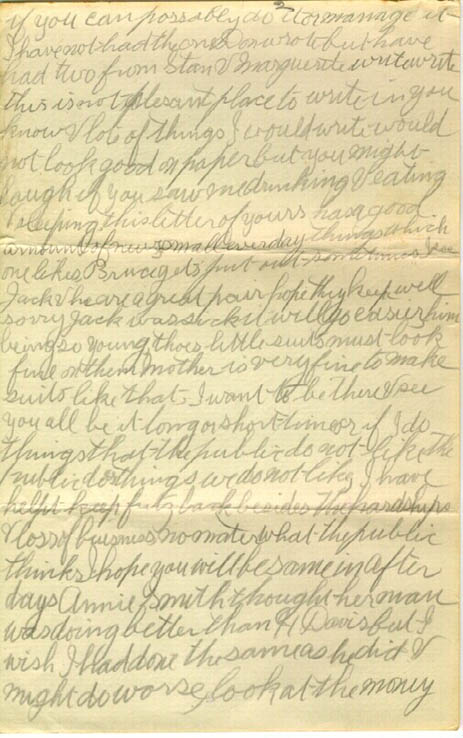 if you can possably do it or manage it
I have not had the one Don wrote but have
had two from Stan & Marguerite write write
this is not plesant place to write in you
know & lots of things I would write would
not look good on paper but you might
laugh if you saw me drinking & eating
sleeping this letter of yours has a good
amount of news small everyday things which
one likes Bruce gets put out sometimes I see
Jack & he are a great pair hope they keep well
sorry Jack was sick it will go easier him
being so young thoes little suits must look
fine on them Mother is very fine to make
suits like that. I want to be there & see
you all be it long or short time or if I do
things that the public do not like the
public do things we do not like I have
helpt keep fritz back besides the hardships
& loss of buisness no mater what the public
thinks I hope you will be same in after
days Annie Smith thought her man
was doing better than H Davis but I
wish I had done the same as he did &
might do worse, look at the money